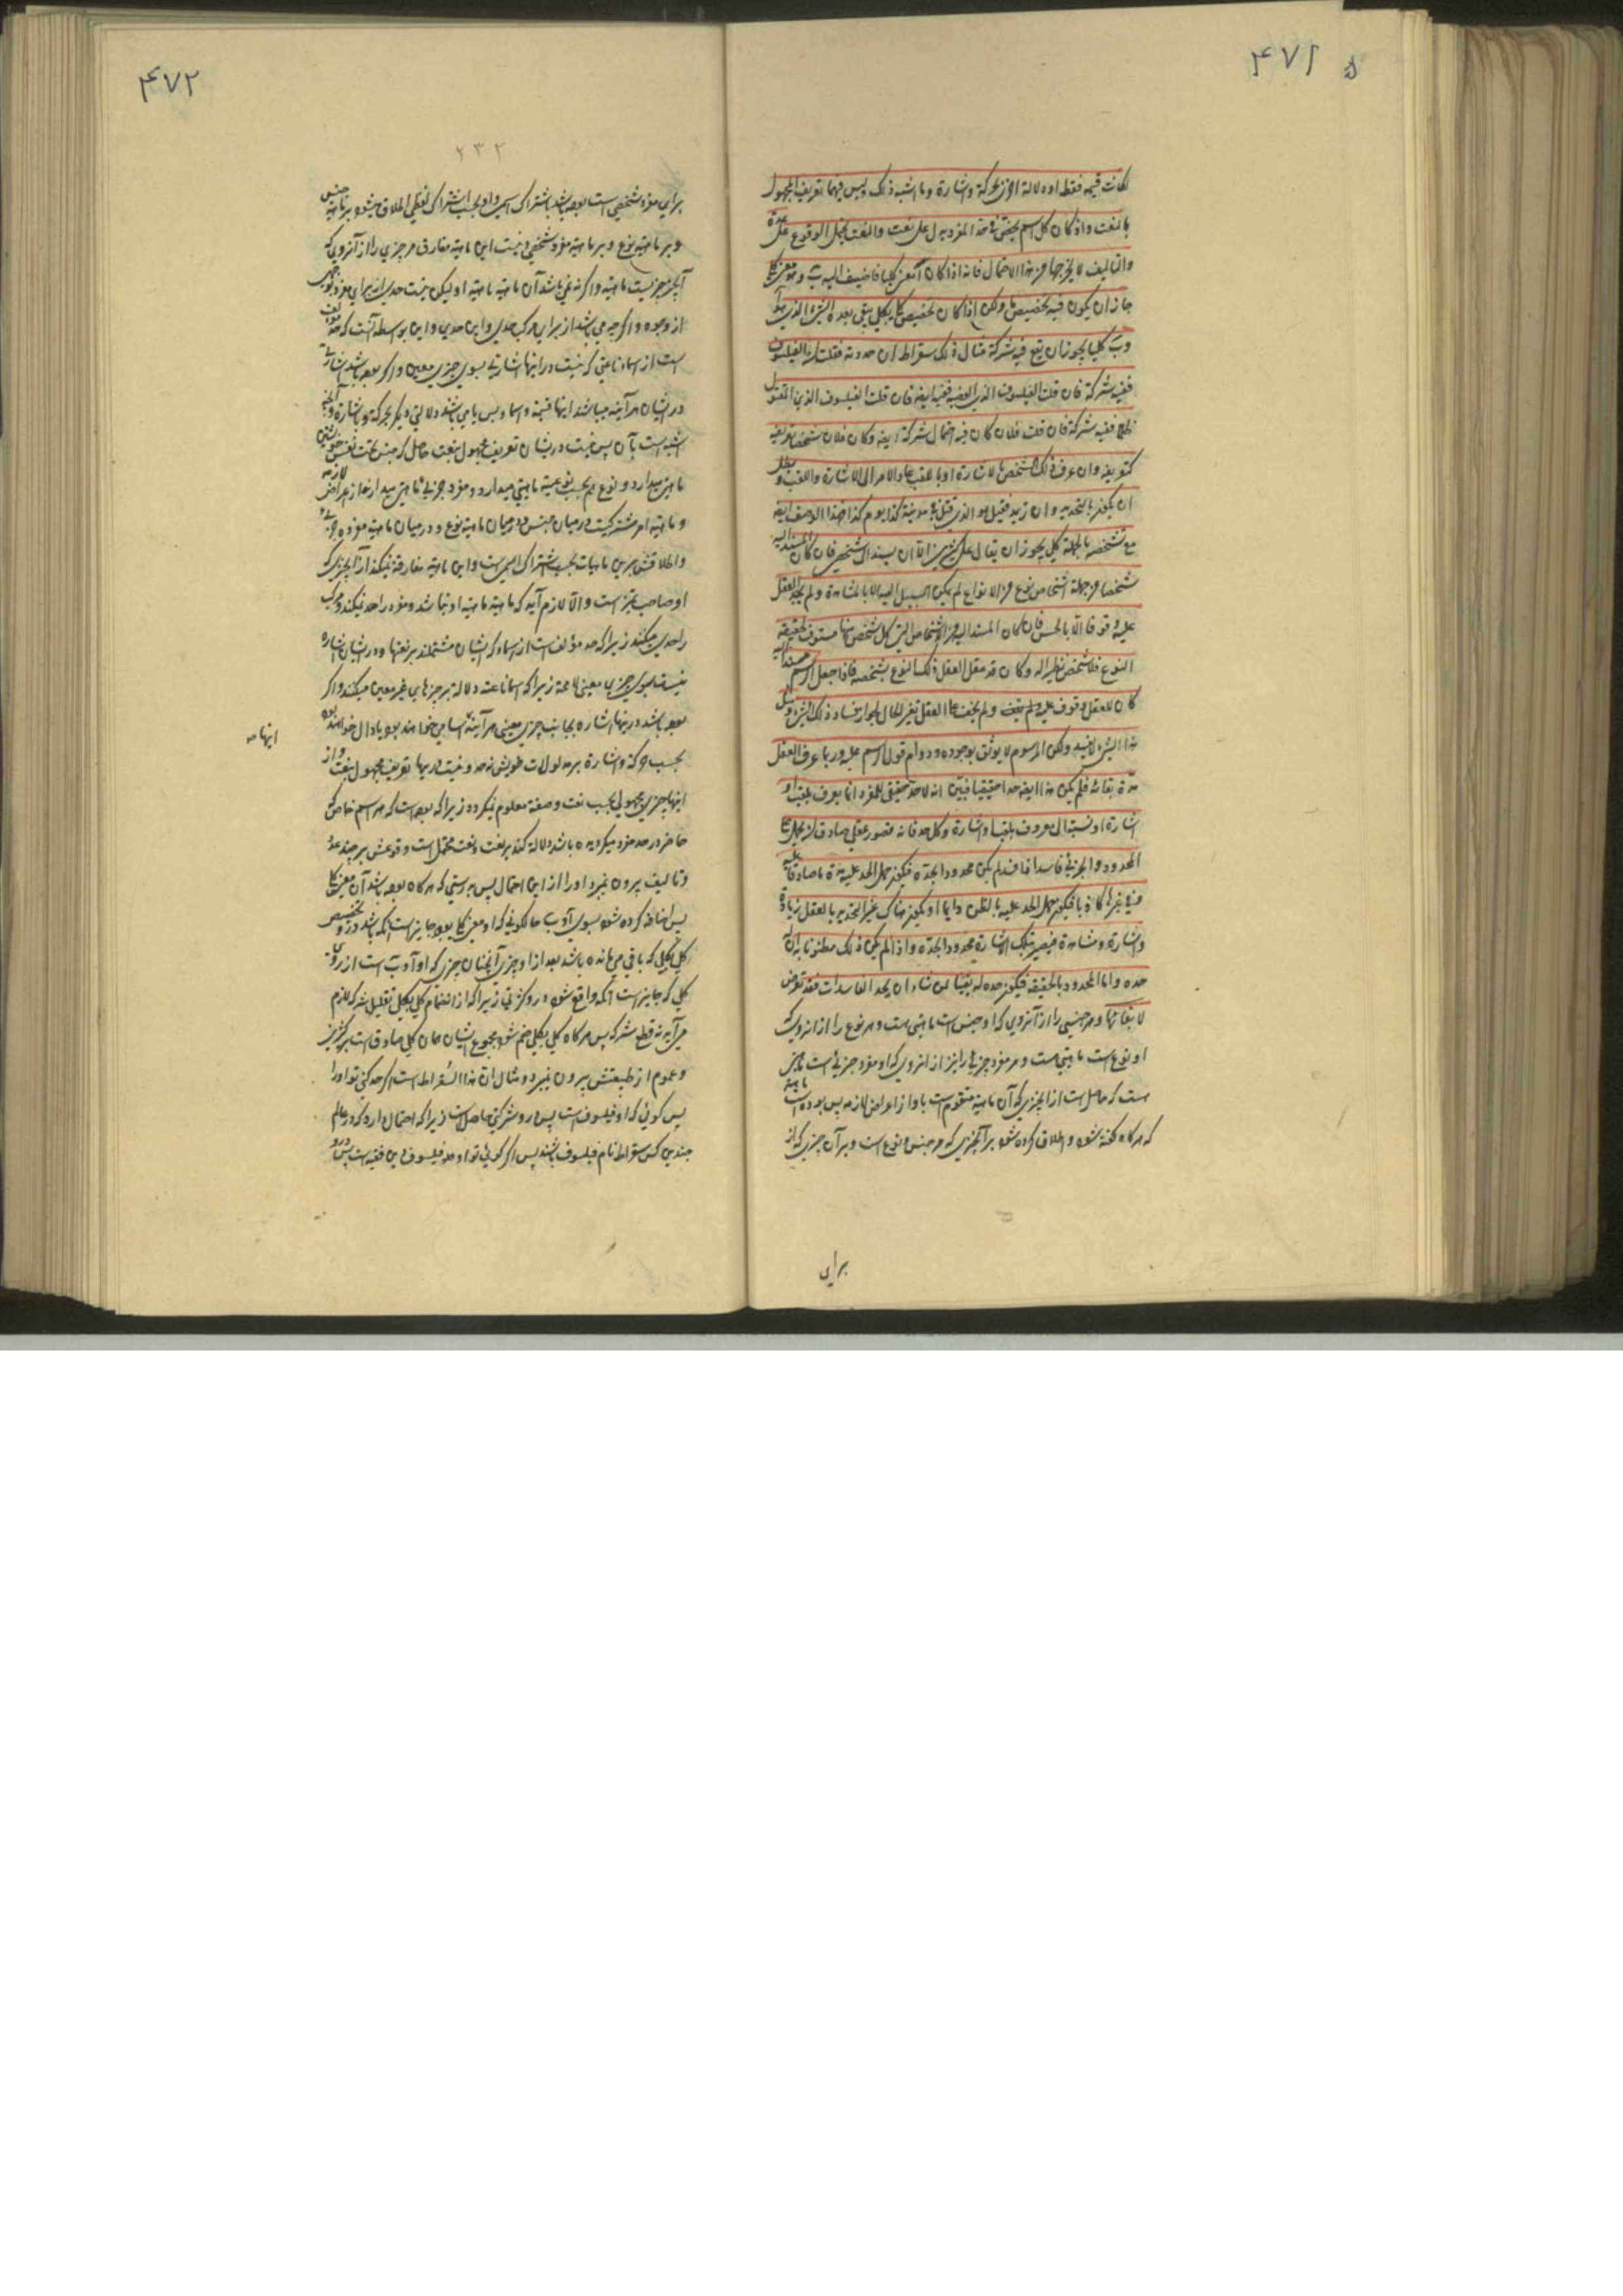 ۴۷۱
لكانت قيمه فقط او دلالة اخرى بحركة واشارة وما اشبه ذلك وليس فيها تعريف المجهول
بالنعت واذ كان كل اسم يحصى فى حد المفرد يدل على نعت والنعت يحتمل الوقوع على عدة
والتاليف لا يخرجها من هذا الاحتمال فانه اذا كان آ معنى كليا فاضيف اليه ب وهو معنى كلى
جاز ان يكون فيه تخصيص ما ولكن اذا كان تخصيص كلى بكلى يبقى بعده الشىء الذى هو آ
وب كليا يجوز ان يقع فيه شركة مثال ذلك سقراط ان حددته فقلت انه الفيلسوف
ففيه شركة فان قلت الفيلسوف الدين ففيه ايضه فان قلت الفيلسوف الدين المقتول
ظلما ففيه شركة فان قلت فلان كان فيه احتمال شركة ايضه وكان فلان شخصا تعريفه
كتعريفه وان عرف ذلك الشخص بالاشارة او باللقب عاد الامر الى الاشارة واللقب وبطل
ان يكون بالتحديد وان زيد فقيل هو الذى قتل فى مدينة كذا يوم كذا فهذا الوصف ايضه
مع تشخصه بالحيلة كلى يجوز ان يقال على كثيرين الا ان يسند الى شخص فان كان المسند اليه
شخصا من جملة اشخاص نوع من الانواع لم يكن السبيل اليه الا بالمشاهدة ولم يجد العقل
عليه وقوفا الا بالحس فان كان المسند اليه من الاشخاص التى كل شخص منها مستوف لحقيقة
النوع فلا شخص نظير اله وكان قد عقل العقل ذلك النوع بشخصه فاذا جعل الرسم مسندا اليه
كان للعقل وقوف عليه ولم يخف العقل تغير الحال لجواز فساد ذلك الشىء
هذا الشىء لا يفسد ولكن المرسوم لا يوثق بوجوده ودوام قول الرسم عليه وربما عرف العقل
مدة بقائه فلم يكن هذا ايضه حدا حقيقيا فبين انه لا حد حقيقى للمفرد انما يعرف بلقب او
اشارة او نسبة الى معروف بلقب او اشارة وكل حد فانه تصور عقلى صادق ان يحمل على
المحدود والجزئى فاسد اذا فسد لم يكن محدودا بحده فيكون حمل الحد عليه مدة ما صادقا
وفى غيرها كاذبا فيكون حمل الحد عليه بالظن دايما او يكون هناك غير التحديد بالعقل زيادة
واشارة ومشاهدة فيصير بتلك الاشارة محدودا بحده واذا لم يكن ذلك مظنونا به ان له
حده واما المحدود بالحقيقة فيكون حده له يقينا فمن شاء ان يحد الفاسدات فقد تعرض
لابقائها و هر جنسى را از آنروى كه او جنس است ماهيتى هست و هر نوع را از انروى كه
او نوع است ماهيتى هست و هر مفرد جزئى را نيز از انروى كه او مفرد جزئى است ماهيتى
هست كه حاصل است از انچيزى كه آن ماهية متقوم است باو از اعراض لازمه پس بوده است ماهية
كه هر گاه گفته شود و اطلاق كرده شود بر آنچيزى كه در جنس و نوع است و بر آن چيزى كه از
براى
۴۷۲
۲۳۲
براى مفرد شخصى است بوده باشد باشتراك اسمى و او بحسب اشتراك لفظى اطلاق ميشود بر ماهية جنس
و بر ماهية نوع و بر ماهية مفرد شخصى و نيست اين ماهية مفارق مر چيزى را از آنروى كه
آنچيز چيزيست ماهية و اگر نه نمى باشد آن ماهية ماهية او ليكن نيست حدى از براى مفرد بوجهى
از وجوه و اگر چه مى باشد از براى مركب حدى و اين حدى و اين بواسطه آنست كه حد مؤلف
است از اسماء ناعتى كه نيست در اينها اشارتى بسوى چيزى معين و اگر بوده باشد اشارتى
در ايشان هر آينه ميباشد اينها قيمه و اسماء و بس يا مى باشد دلالتى ديگر بحركة و باشارة و آنچه
اشبه است بآن پس نيست در ايشان تعريف مجهول بنعت حاصل كه جنس بحسب نفس خويشتن
ماهيتى ميدارد و نوع هم بحسب نوعية ماهيتى ميدارد و مفرد جزئى ماهيتى ميدارد از اعراض لازمه
و ماهية امر مشتركيست در ميان جنس و در ميان ماهية نوع و در ميان ماهية مفرده جزئى
و اطلاقش برين ماهيات بحسب اشتراك اسمى است و اين ماهية مفارقة نميكند از آنچيزى كه
او صاحب چيز است و الا لازم آيد كه ماهية ماهية او نباشد و مفرد را حد نميكند و مركب
را حدى ميكند زيرا كه حد مؤلف است از اسماء كه ايشان مشتملند بر نعتها و در ايشان اشاره
نيست بسوى چيزى معينى لا محة زيرا كه اسماء ناعته دلالة بر چيزهاى غير معين ميكند و اگر
بوده باشد درينها اشاره بجانب چيزى معينى هر آينه اسامى خواهند بود يا دال خواهند بود
بحسب حركة و اشارة بر مدلولات خويش نه حد و نيست درينها تعريف مجهول بنعت و از
اينها چيزى مجهولى بحسب نعت و صفة معلوم نميگردد زيرا كه بوده است كه هر اسم خاص كه
حاضر در حد مفرد ميگرديده باشد دلالة كند بر نعت و نعت محتمل است وقوعش بر چند عدد
و تاليف بيرون نميبرد او را از اين احتمال پس بدرستى كه هر گاه بوده باشد آ معنى كلى
پس اضافه كرده شود بسوى آو ب حالكونى كه او معنى كلى بود جايز است آنكه باشد درو تخصيص
كلى بكلى كه باقى مى مانده باشد بعد از او چيزى آنچنان چيزى كه او آ و ب است از روى
كلى كه جايز است آنكه واقع شود درو شركتى زيرا كه از انضمام كلى بكلى تقليل شركة لازم
مى آيد نه قطع شركة پس هر گاه كلى بكلى ضم شود مجموع ايشان همان كلى صادق است بر كثيرين
و عموم از طبيعتش بيرون نميرود و مثال ان هذا السقراط است اگر حد كنى تو او را
پس گوئى كه او فيلسوف است پس درو شركتى حاصل است زيرا كه احتمال دارد كه در عالم
چندين كس سقراط نام فيلسوف باشند پس اگر گوئى تو او حد فيلسوف دين ففيه است پس درو
اينها